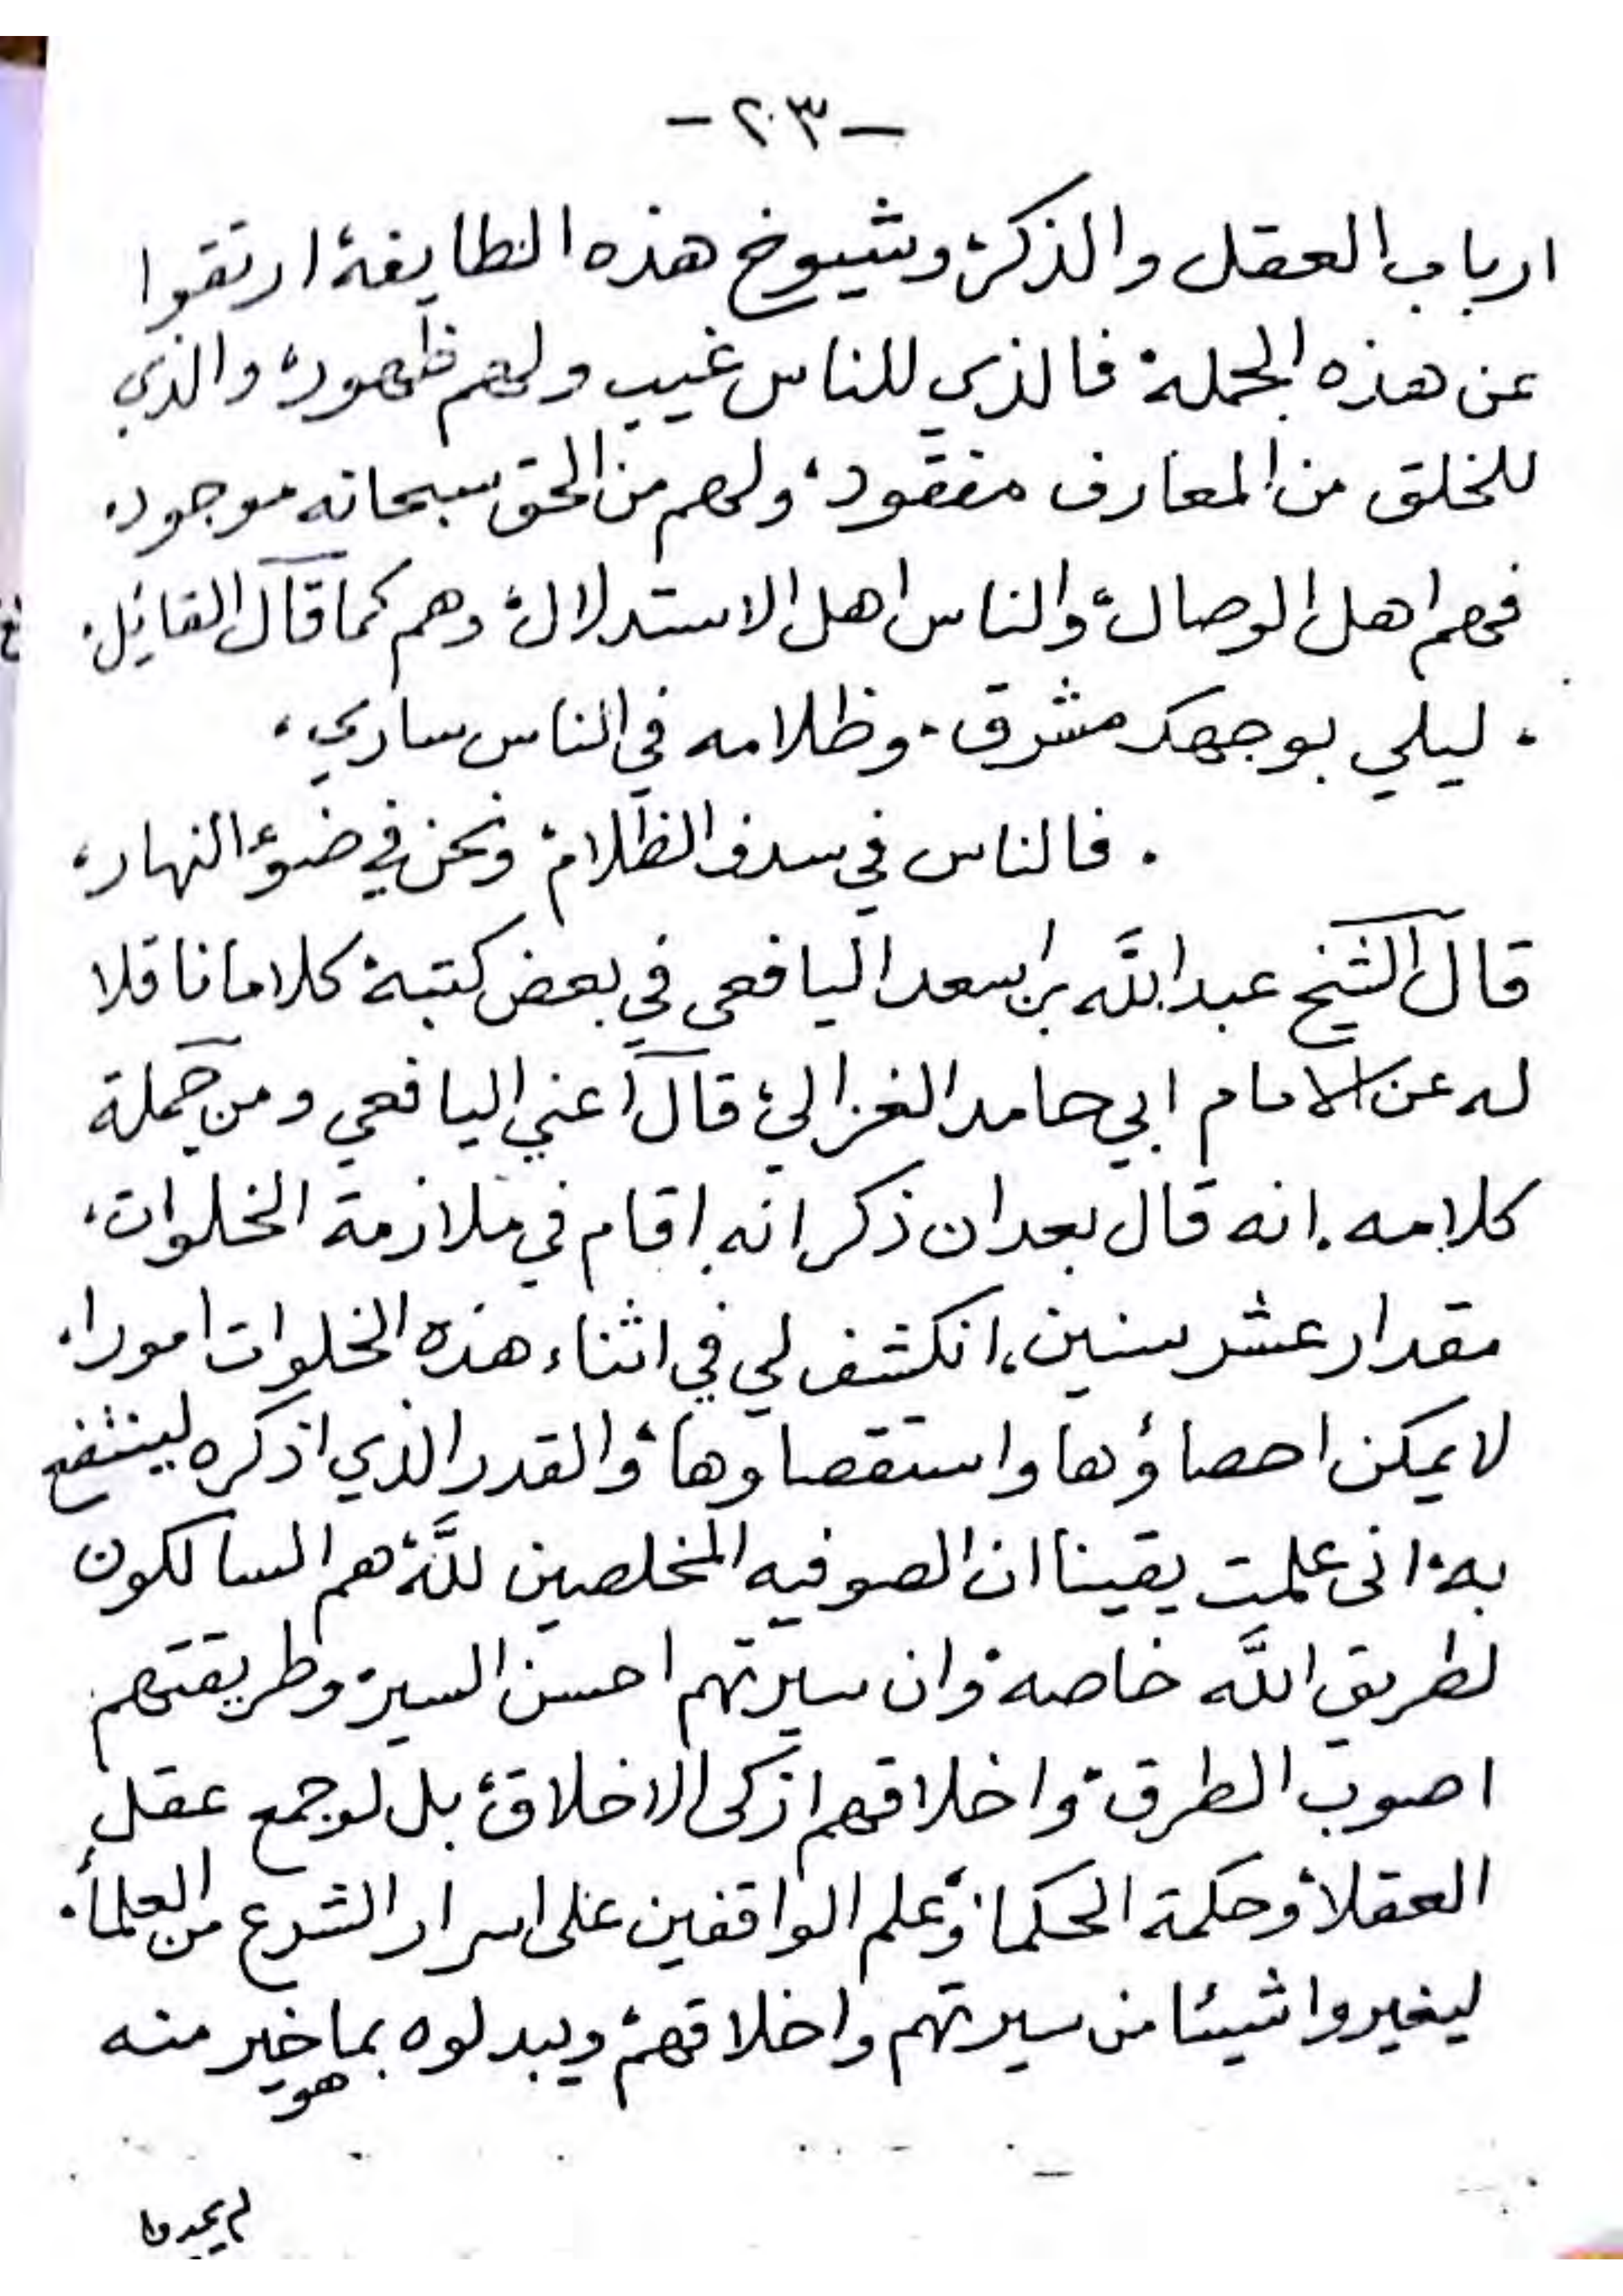 -٢٠٣-
ارباب العقل والذكر، وشيوخ هذه الطايفة ارتقوا
عن هذه الجملة فالذي للناس غيب ولهم ظهور، والذي
للخلق من المعارف مفقود، ولهم من الحق سبحانه موجود،
فهم اهل الوصال، والناس اهل الاستدلال، وهم كما قال القايل.
. ليلي بوجهك مشرق . وظلامه في الناس ساري،
. فالناس في سدف الظلام، ونحن في ضوء النهار،
قال الشيخ عبدالله بن اسعد اليافعي في بعض كتبه كلاما ناقلا
له عن الامام ابي حامد الغزالي، قال اعني اليافعي ومن جملة
كلامه . انه قال بعد ان ذكر انه اقام في ملازمة الخلوات،
مقدار عشر سنين، انكشف لي في اثناء هذه الخلوات امورا،
لا يمكن احصاؤها واستقصاوها، والقدر الذي اذكره لينتفع
به، انى علمت يقينا ان الصوفيه المخلصين لله، هم السالكون
لطريق الله خاصه، وان سيرتهم احسن السير، وطريقتهم
اصوب الطرق، واخلاقهم ازكى الاخلاق، بل لو جمع عقل
العقلاء وحكمة الحكما، وعلم الواقفين على اسرار الشرع من العلمأ.
ليغيروا شيئا من سيرتهم واخلاقهم، ويبدلوه بما هو خير منه
لم يجدوا